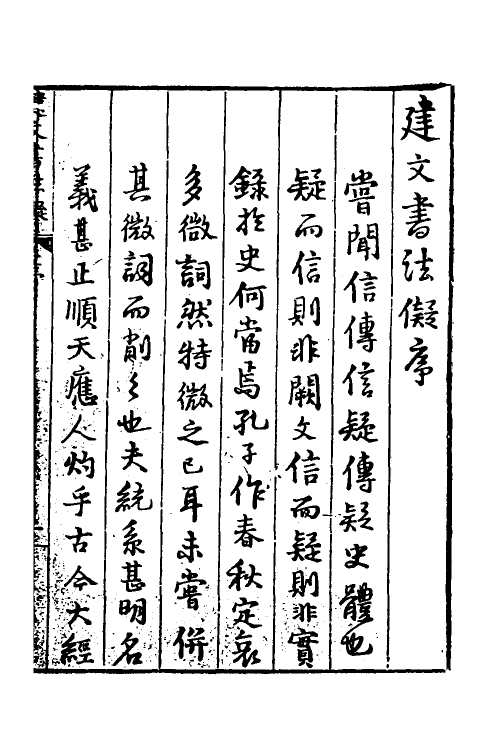 建文書法儗序
嘗聞信傳信疑傳疑史體也
疑而信則非闕文信而疑則非實
錄於史何當焉孔子作春秋定哀
多微詞然特微之已耳未嘗併
其微詞而削之也夫統系甚明名
義甚正順天應人灼乎古今大經